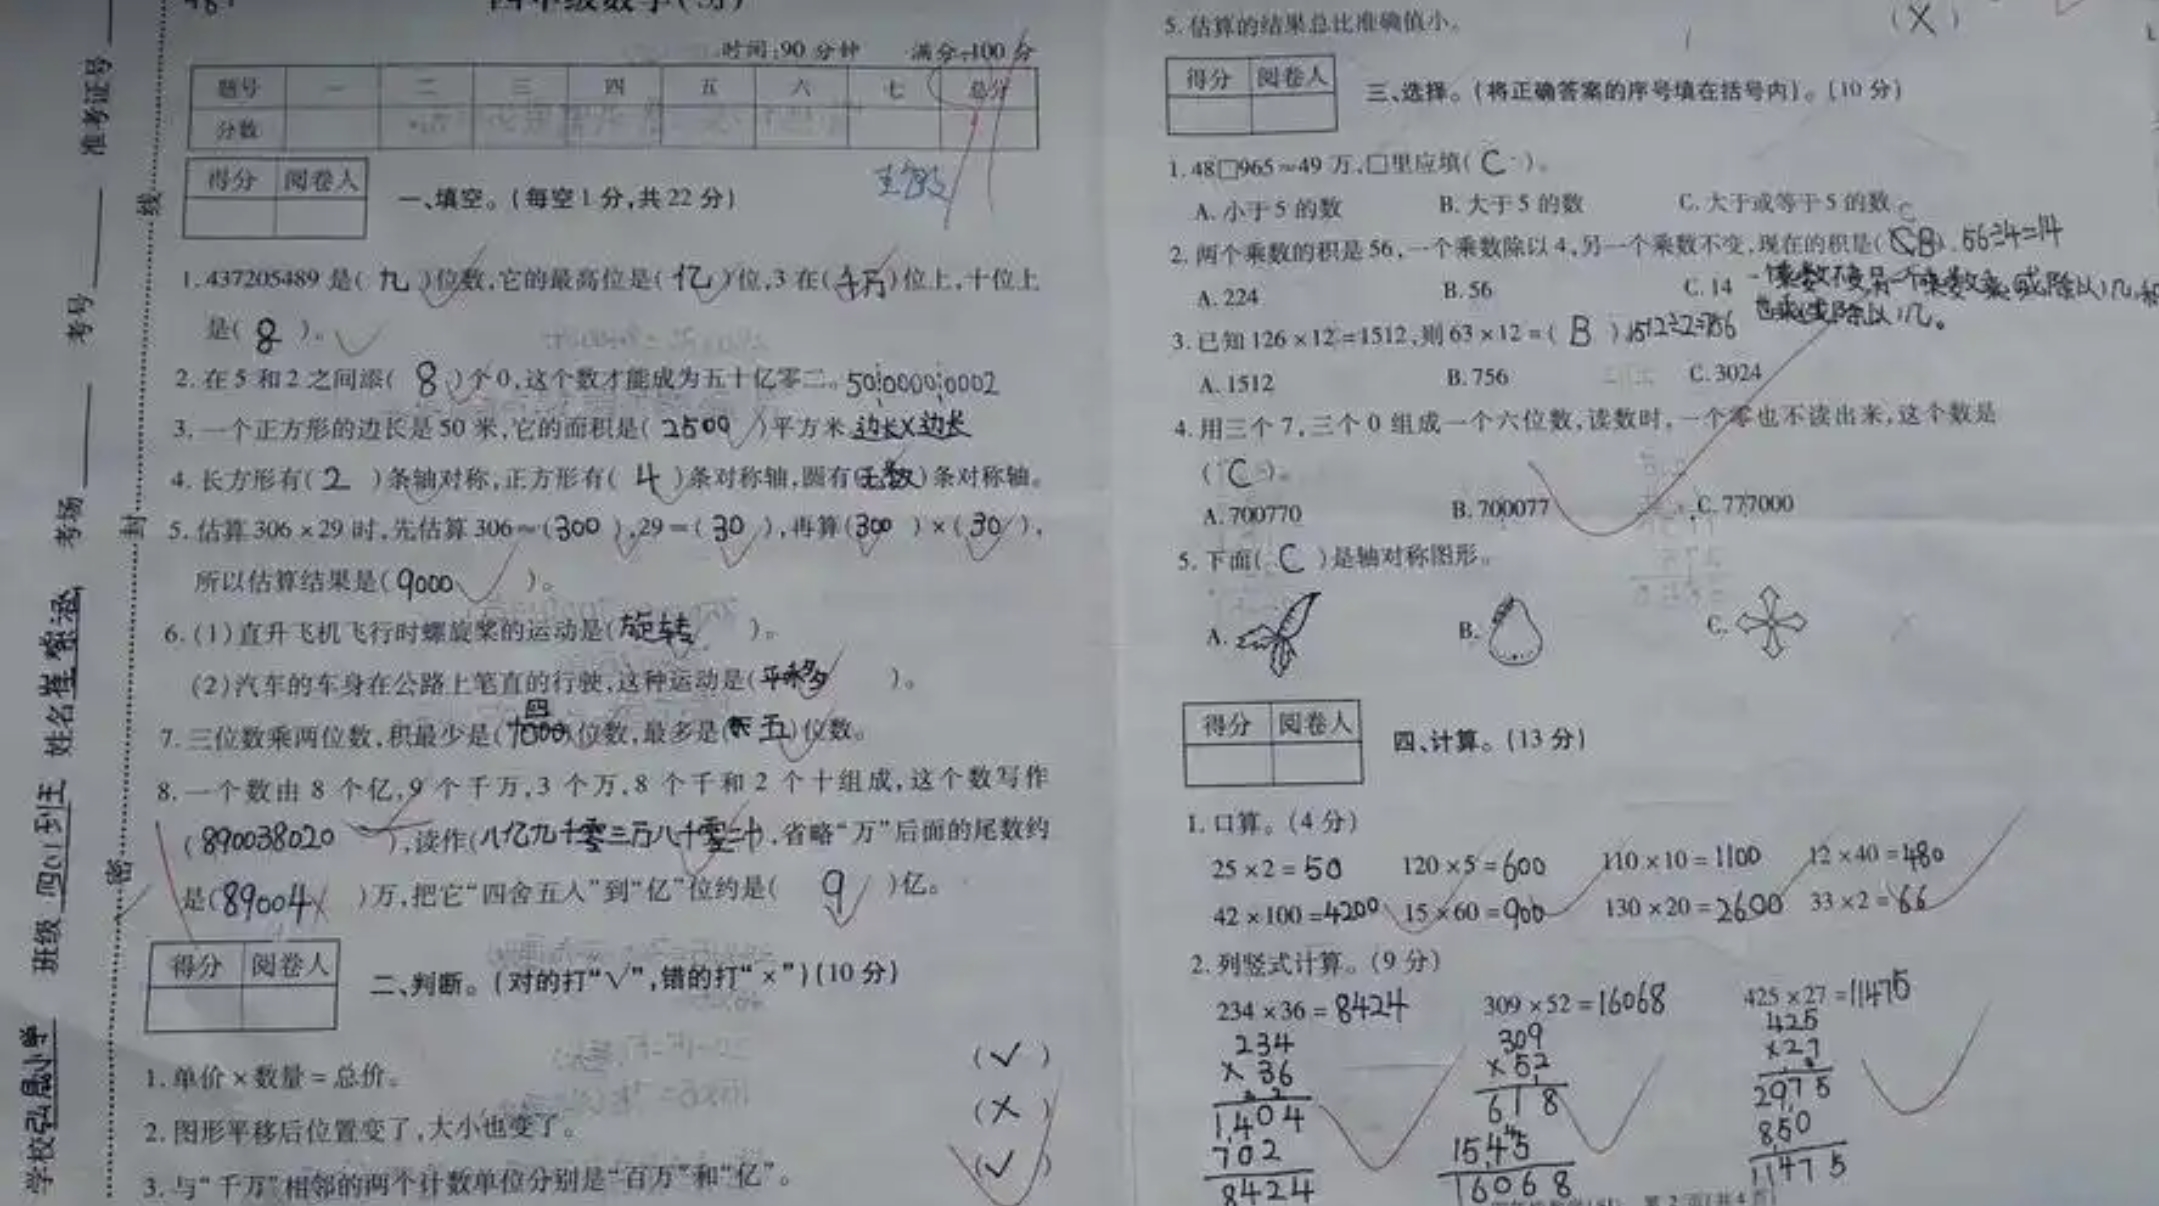 四年级数学(

时间:90分钟 满分:100分
题号 一 二 三 四 五 六 七 总分
分数
得分 阅卷人
一、填空。(每空1分,共22分)
1.437205489是(九)位数,它的最高位是(亿)位,3在(千万)位上,十位上
是(8)。
2.在5和2之间添(8)个0,这个数才能成为五十亿零二。5000000002
3.一个正方形的边长是50米,它的面积是(2500)平方米 边长×边长
4.长方形有(2)条轴对称,正方形有(4)条对称轴,圆有(无数)条对称轴。
5.估算306×29时,先估算306≈(300),29≈(30),再算(300)×(30),
所以估算结果是(9000)。
6.(1)直升飞机飞行时螺旋桨的运动是(旋转)。
(2)汽车的车身在公路上笔直的行驶,这种运动是(平移)。
7.三位数乘两位数,积最少是(四)位数,最多是(五)位数。
8.一个数由8个亿,9个千万,3个万,8个千和2个十组成,这个数写作
(890038020),读作(八亿九千零三万八千零二十),省略“万”后面的尾数约
是(89004)万,把它“四舍五入”到“亿”位约是(9)亿。
得分 阅卷人
二、判断。(对的打“√”,错的打“×”)(10分)
1.单价×数量=总价。 (√)
2.图形平移后位置变了,大小也变了。 (×)
3.与“千万”相邻的两个计数单位分别是“百万”和“亿”。 (√)
准考证号
考号
考场
姓名
班级 四(1)
学校 小学
线
封
密
5.估算的结果总比准确值小。 (×)
得分 阅卷人
三、选择。(将正确答案的序号填在括号内)。(10分)
1.48□965≈49万,□里应填(C)。
A.小于5的数 B.大于5的数 C.大于或等于5的数
2.两个乘数的积是56,一个乘数除以4,另一个乘数不变,现在的积是( ) 56÷4=14
A.224 B.56 C.14 一个乘数不变,另一个乘数乘或除以几,积
也乘或除以几。
3.已知126×12=1512,则63×12=(B) 1512÷2=756
A.1512 B.756 C.3024
4.用三个7,三个0组成一个六位数,读数时,一个零也不读出来,这个数是
(C)。
A.700770 B.700077 C.777000
5.下面(C)是轴对称图形。
A. B. C.
得分 阅卷人
四、计算。(13分)
1.口算。(4分)
25×2=50 120×5=600 110×10=1100 12×40=480
42×100=4200 15×60=900 130×20=2600 33×2=66
2.列竖式计算。(9分)
234×36=8424 309×52=16068 425×27=11475
234 309 425
×36 ×52 ×27
1404 618 2975
702 1545 850
8424 16068 11475